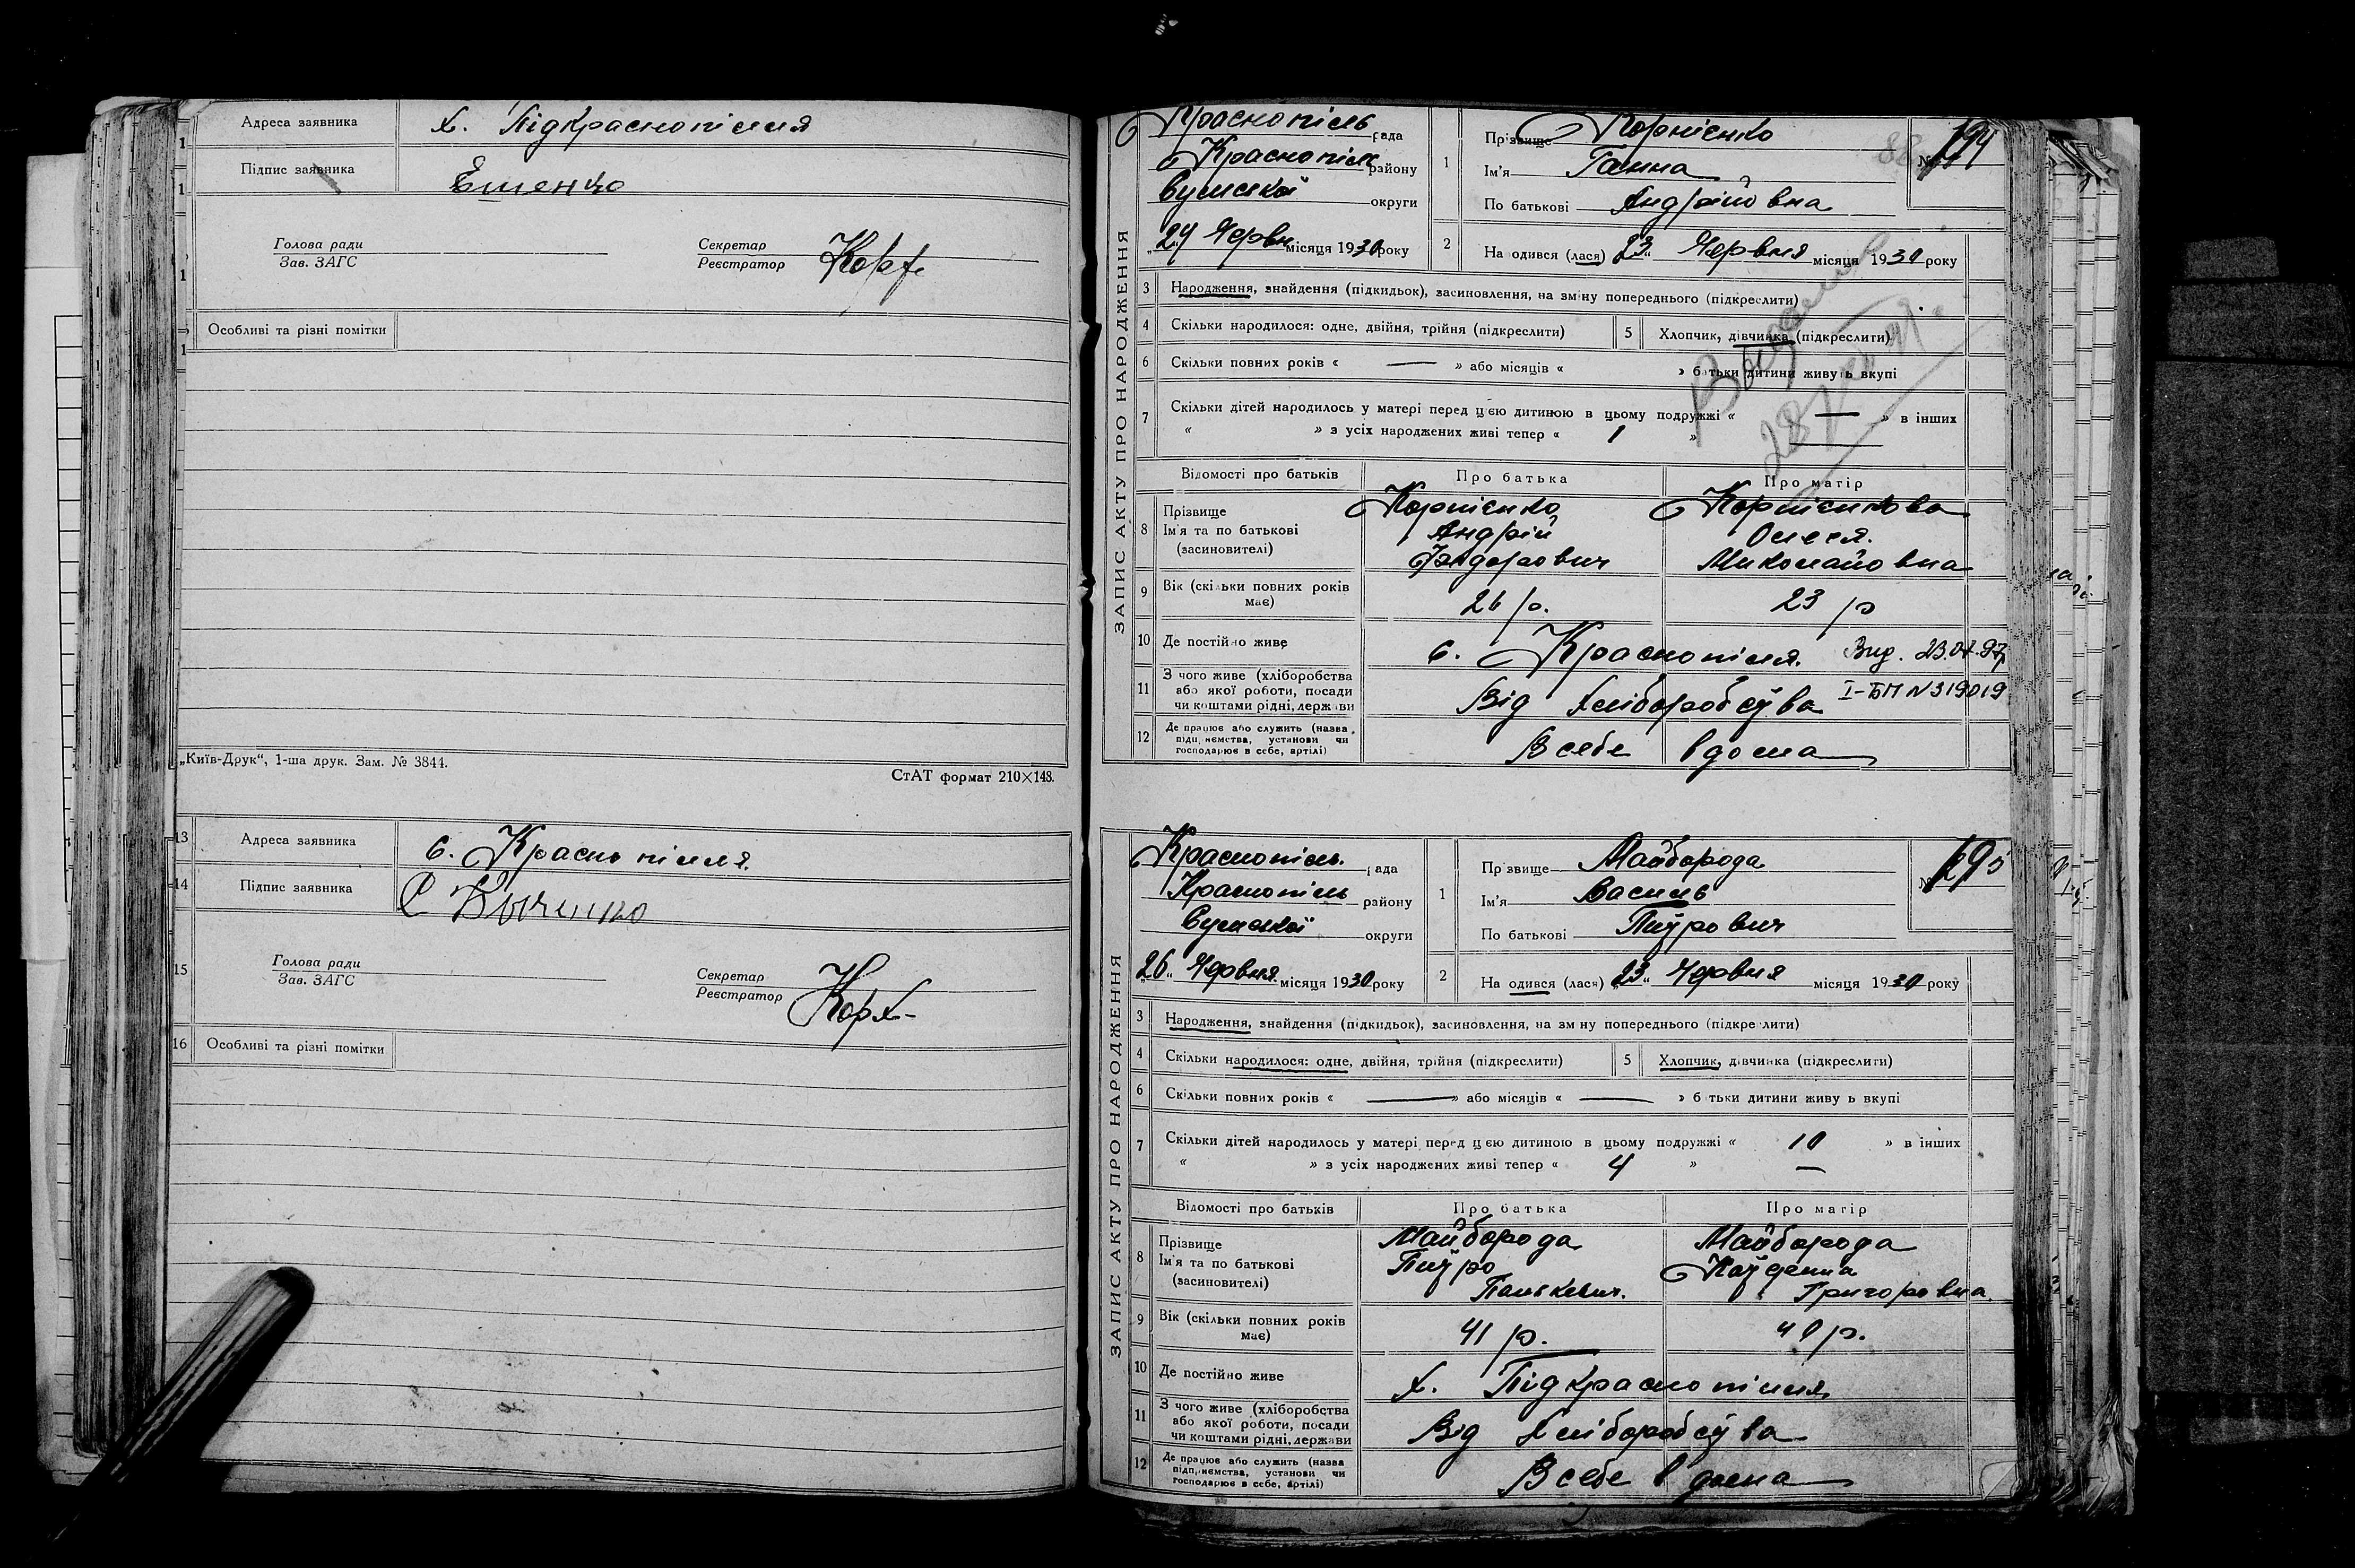 Адреса заявника х. Підкраснопілля
Підпис заявника Ященко
Голова ради
Зав. ЗАГС
Секретар
Реєстратор Корх
Особливі та різні помітки
„Київ-Друк“, 1-ша друк. Зам. № 3844.
СтАТ формат 210×148.
13 Адреса заявника с. Краснопілля
14 Підпис заявника
15 Голова ради
Зав. ЗАГС
Секретар
Реєстратор Корх
16 Особливі та різні помітки
ЗАПИС АКТУ ПРО НАРОДЖЕННЯ
Краснопіль рада
Краснопіль району
Сумської округи
„24“ Червн місяця 1930 року
1 Прізвище Корнієнко
Ім'я Ганна
По батькові Андрійовна
88 № 194
2 На одився (лася) „23“ Червня місяця 1930 року
3 Народження, знайдення (підкидьок), засиновлення, на зміну попереднього (підкреслити)
4 Скільки народилося: одне, двійня, трійня (підкреслити) 5 Хлопчик, дівчинка (підкреслити)
6 Скільки повних років « — » або місяців « » батьки дитини живуть вкупі
7 Скільки дітей народилось у матері перед цією дитиною в цьому подружжі « — » в інших
« » з усіх народжених живі тепер « 1 » —
Відомості про батьків Про батька Про матір
8 Прізвище Корнієнко Корнієнкова
Ім'я та по батькові Андрій Олеся.
(засиновителі) Федорович Миколайовна
9 Вік (скільки повних років має) 26 р. 23 р
10 Де постійно живе с. Краснопілля. Вид. 23.04.97
11 З чого живе (хліборобства
або якої роботи, посади
чи коштами рідні, держави Від хліборобства I-БП N 319019
12 Де працює або служить (назва
підприємства, установи чи
господарює в себе, артілі) В себе вдома
ЗАПИС АКТУ ПРО НАРОДЖЕННЯ
Краснопіль рада
Краснопіль району
Сумської округи
„26“ Червня місяця 1930 року
1 Прізвище Майборода
Ім'я Василь
По батькові Питрович
№ 195
2 На одився (лася) „23“ Червня місяця 1930 року
3 Народження, знайдення (підкидьок), засиновлення, на зміну попереднього (підкреслити)
4 Скільки народилося: одне, двійня, трійня (підкреслити) 5 Хлопчик, дівчинка (підкреслити)
6 Скільки повних років « — » або місяців « — » батьки дитини живуть вкупі
7 Скільки дітей народилось у матері перед цією дитиною в цьому подружжі « 10 » в інших
« » з усіх народжених живі тепер « 4 » —
Відомості про батьків Про батька Про матір
8 Прізвище Майборода Майборода
Ім'я та по батькові Питро
(засиновителі) Панькевич. Григоровна.
9 Вік (скільки повних років має) 41 р. 40 р.
10 Де постійно живе х. Підкраснопілля
11 З чого живе (хліборобства
або якої роботи, посади
чи коштами рідні, держави Від хліборобства
12 Де працює або служить (назва
підприємства, установи чи
господарює в себе, артілі) В себе вдома